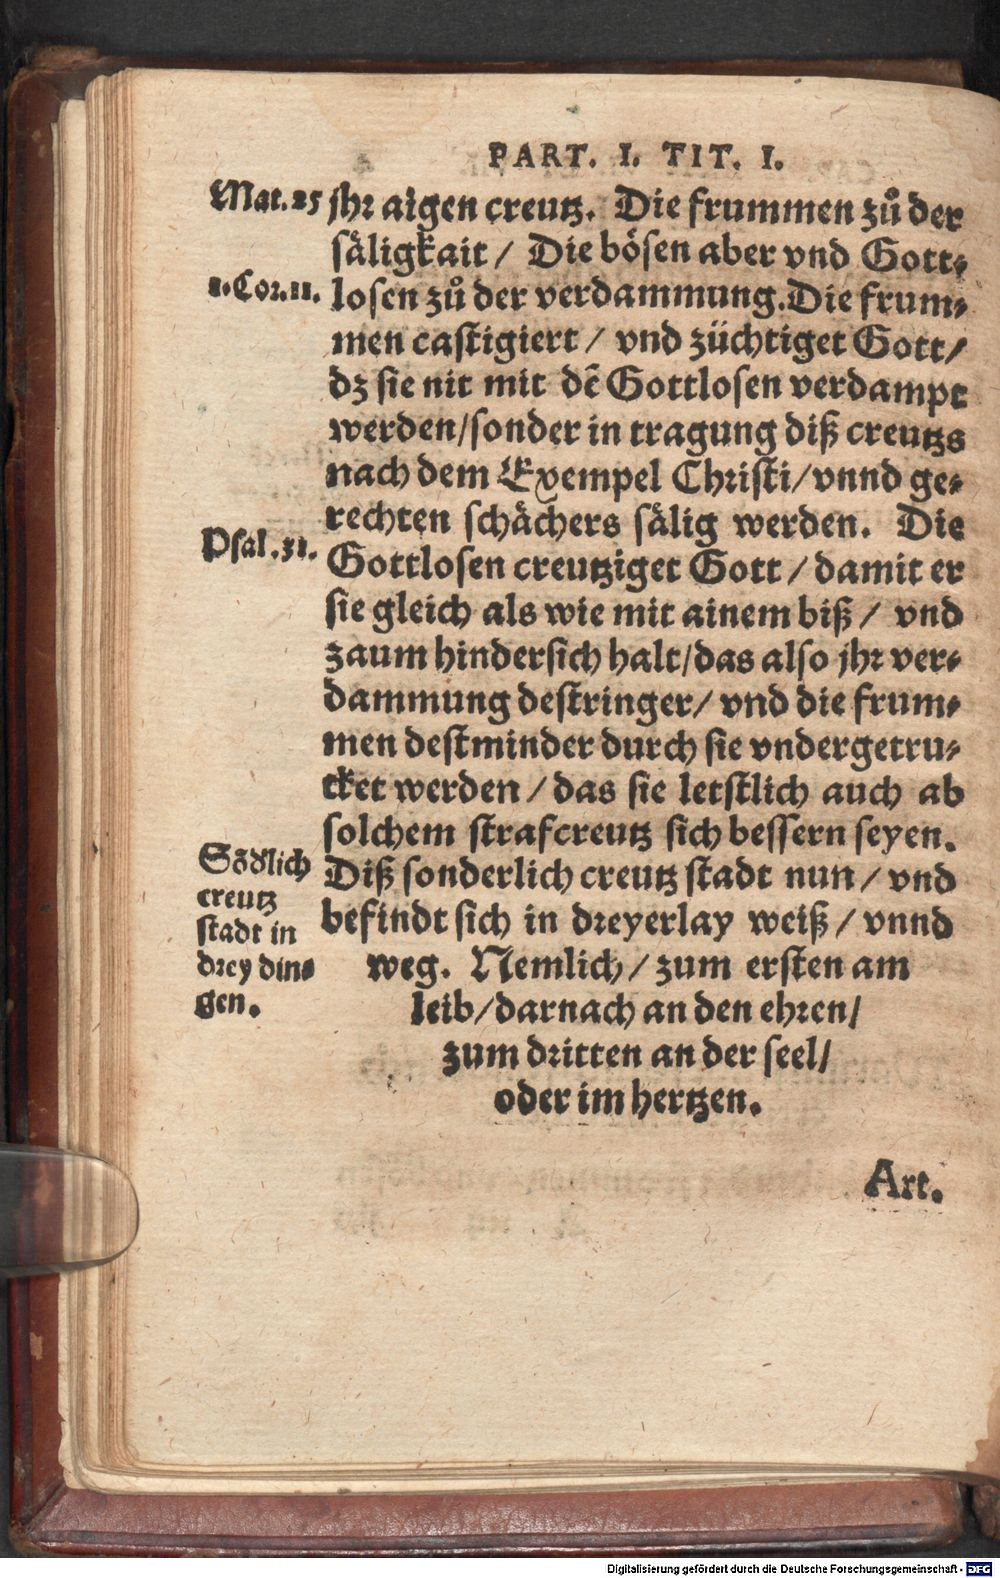 PART. I. TIT. I.
Mat.25
jhr aigen creutz. Die frummen zů der
säligkait / Die bösen aber vnd Gott-
1.Cor.11.
losen zů der verdammung. Die frum-
men castigiert / vnd züchtiget Gott /
dz sie nit mit dē Gottlosen verdampt
werden / sonder in tragung diß creutzs
nach dem Exempel Christi / vnnd ge-
rechten schächers sälig werden. Die
Psal.31.
Gottlosen creutziget Gott / damit er
sie gleich als wie mit ainem biß / vnd
zaum hindersich halt / das also jhr ver-
dammung destringer / vnd die frum-
men destminder durch sie vndergetru-
cket werden / das sie letstlich auch ab
solchem strafcreutz sich bessern seyen.
Sōdlich
creutz
stadt in
drey din-
gen.
Diß sonderlich creutz stadt nun / vnd
befindt sich in dreyerlay weiß / vnnd
weg. Nemlich / zum ersten am
leib / darnach an den ehren /
zum dritten an der seel /
oder im hertzen.
Art.
Digitalisierung gefördert durch die Deutsche Forschungsgemeinschaft - DFG